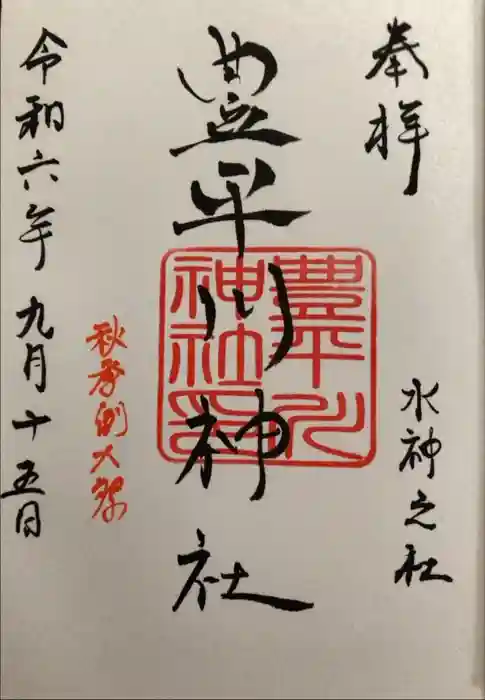 奉拝
水神之社
豊平川神社
豊平川神社印
秋季例大祭
令和六年九月十五日